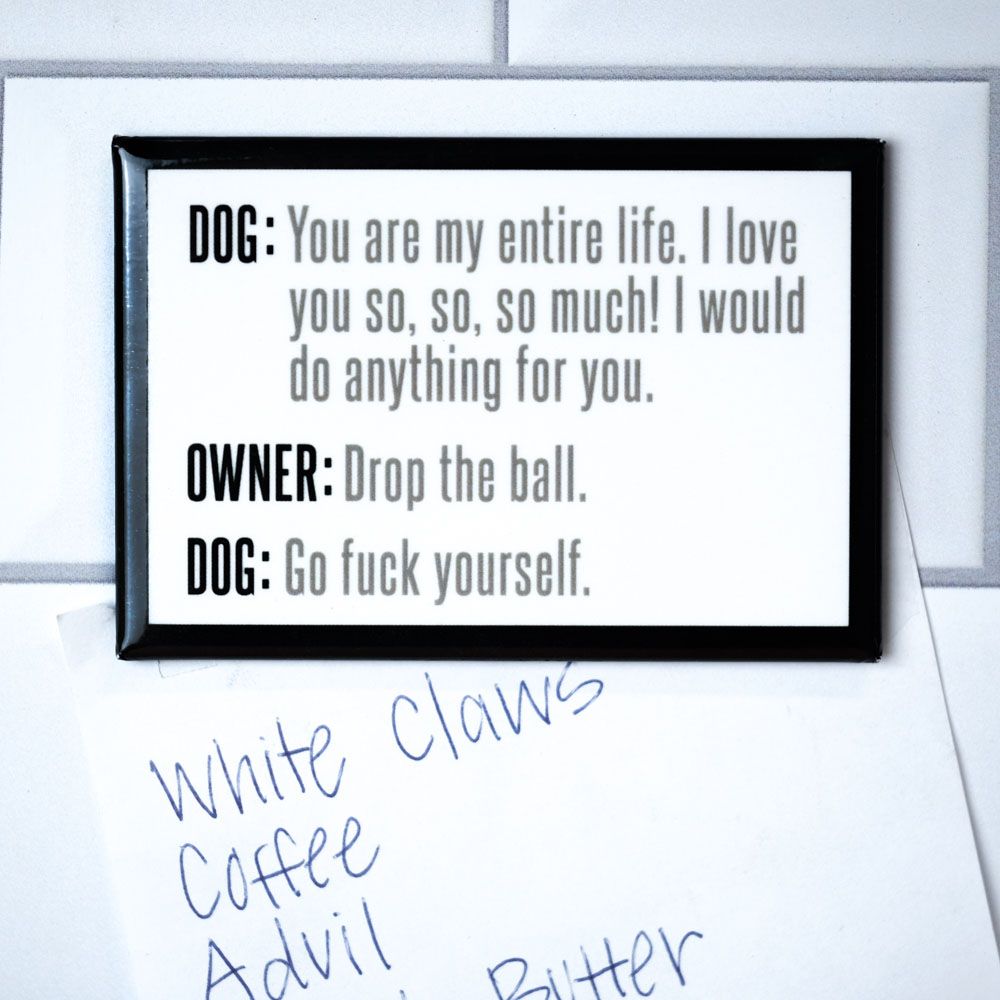 DOG: You are my entire life. I love
you so, so, so much! I would
do anything for you.
OWNER: Drop the ball.
DOG: Go fuck yourself.
White Claws
Coffee
Advil
Butter